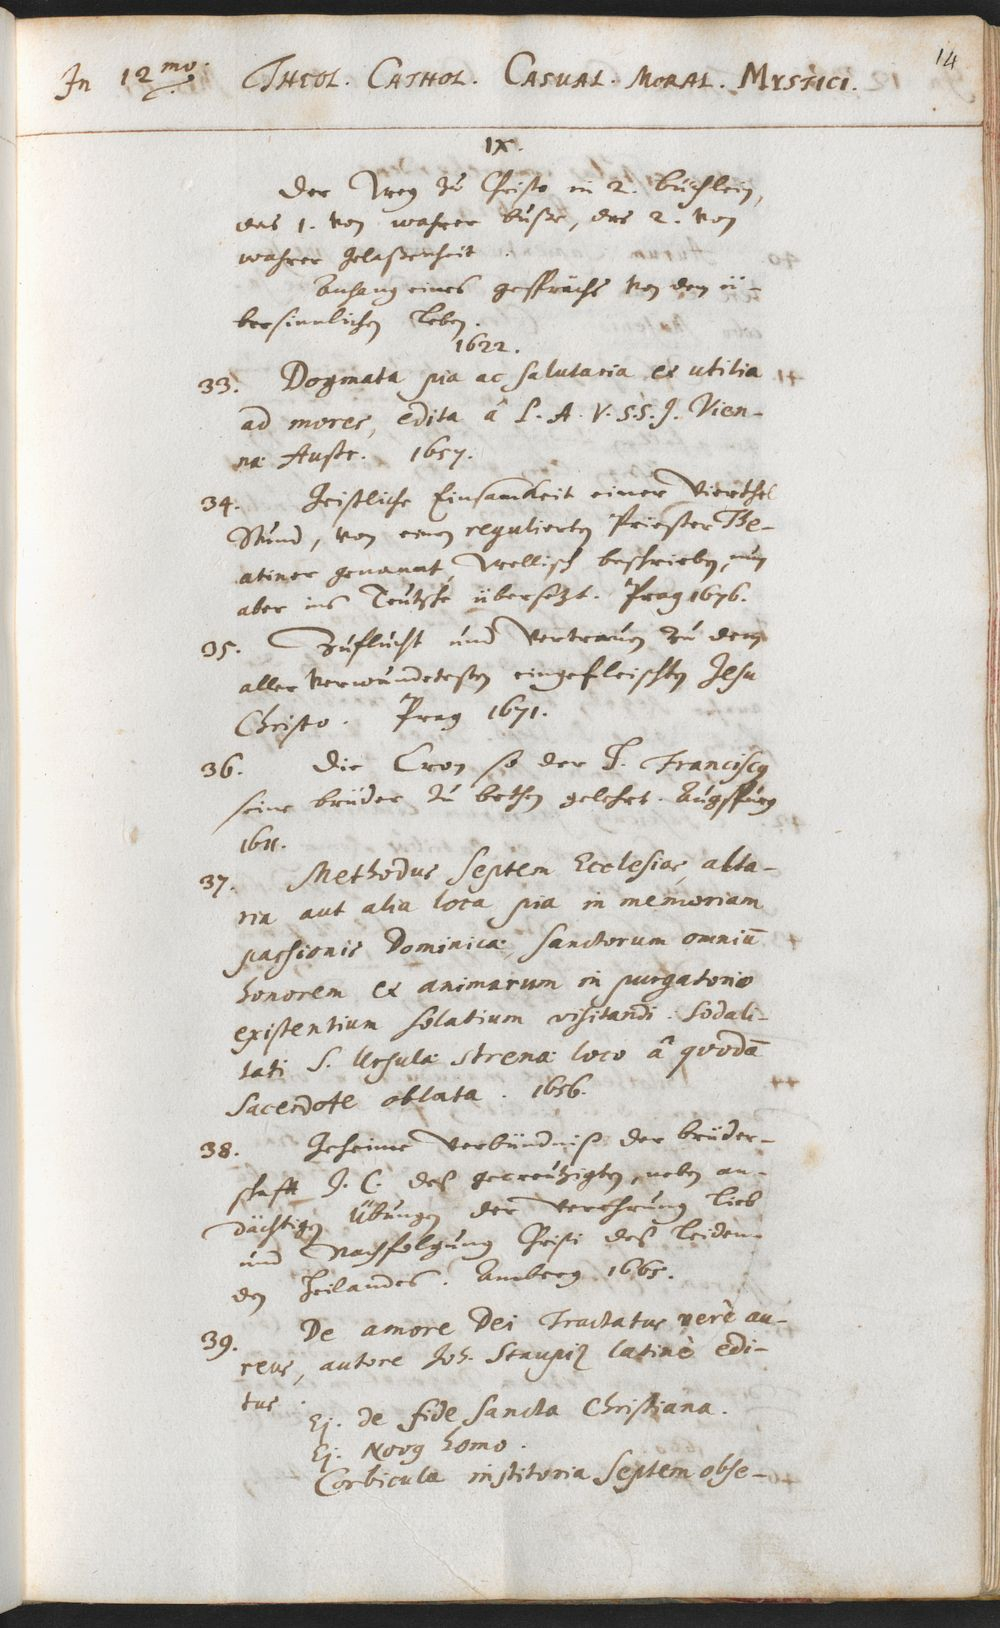 14
In 12mo. THEOL. CATHOL. CASUAL. MORAL. MYSTICI.
IX.
Der Weg zu Christo in 2. büchlein,
das 1. von wahrer buße, das 2. von
wahrer gelaßenheit.
Anhang eines gesprächs von dem ü-
bersinnlichen leben.
1622.
33. Dogmata pia ac salutaria et utilia
ad mores, edita â L. A. V. S.S. J. Vien-
næ Austr. 1657.
34. Geistliche Einsamkeit einer Vierthel
Stund, von einen regulierten Priester The-
atiner genannt, Wellisch beschrieben, nun
aber ins Teutsche übersetzt. Prag 1676.
35. Zuflucht und Vertrauen zu dem
aller verwundetesten eingefleischten Jesu
Christo. Prag 1671.
36. Die Cron so der S. Franciscus
seine brüder zu bethen gelehrt. Augspurg
1611.
37. Methodus Septem Ecclesias, alta-
ria aut alia loca pia in memoriam
passionis Dominicæ, Sanctorum omniū
honorem et animarum in purgatorio
existentium solatium visitandi. Sodali-
tati S. Ursulæ strenæ loco â quodā
Sacerdote oblata. 1656.
38. Geheime Verbündniß der brüder-
schafft J. C. deß gecreutzigten, neben an-
dächtigen Übungen der Verehrung Lieb
und Nachfolgung Christi deß leiden-
den Heilandes. Amberg 1665.
39. De amore Dei Tractatus verè au-
reus, autore Joh. Staupiz latinè edi-
tus.
Ej. de fide Sancta Christiana.
Ej. Novus homo.
Corbicula institoria Septem obse-